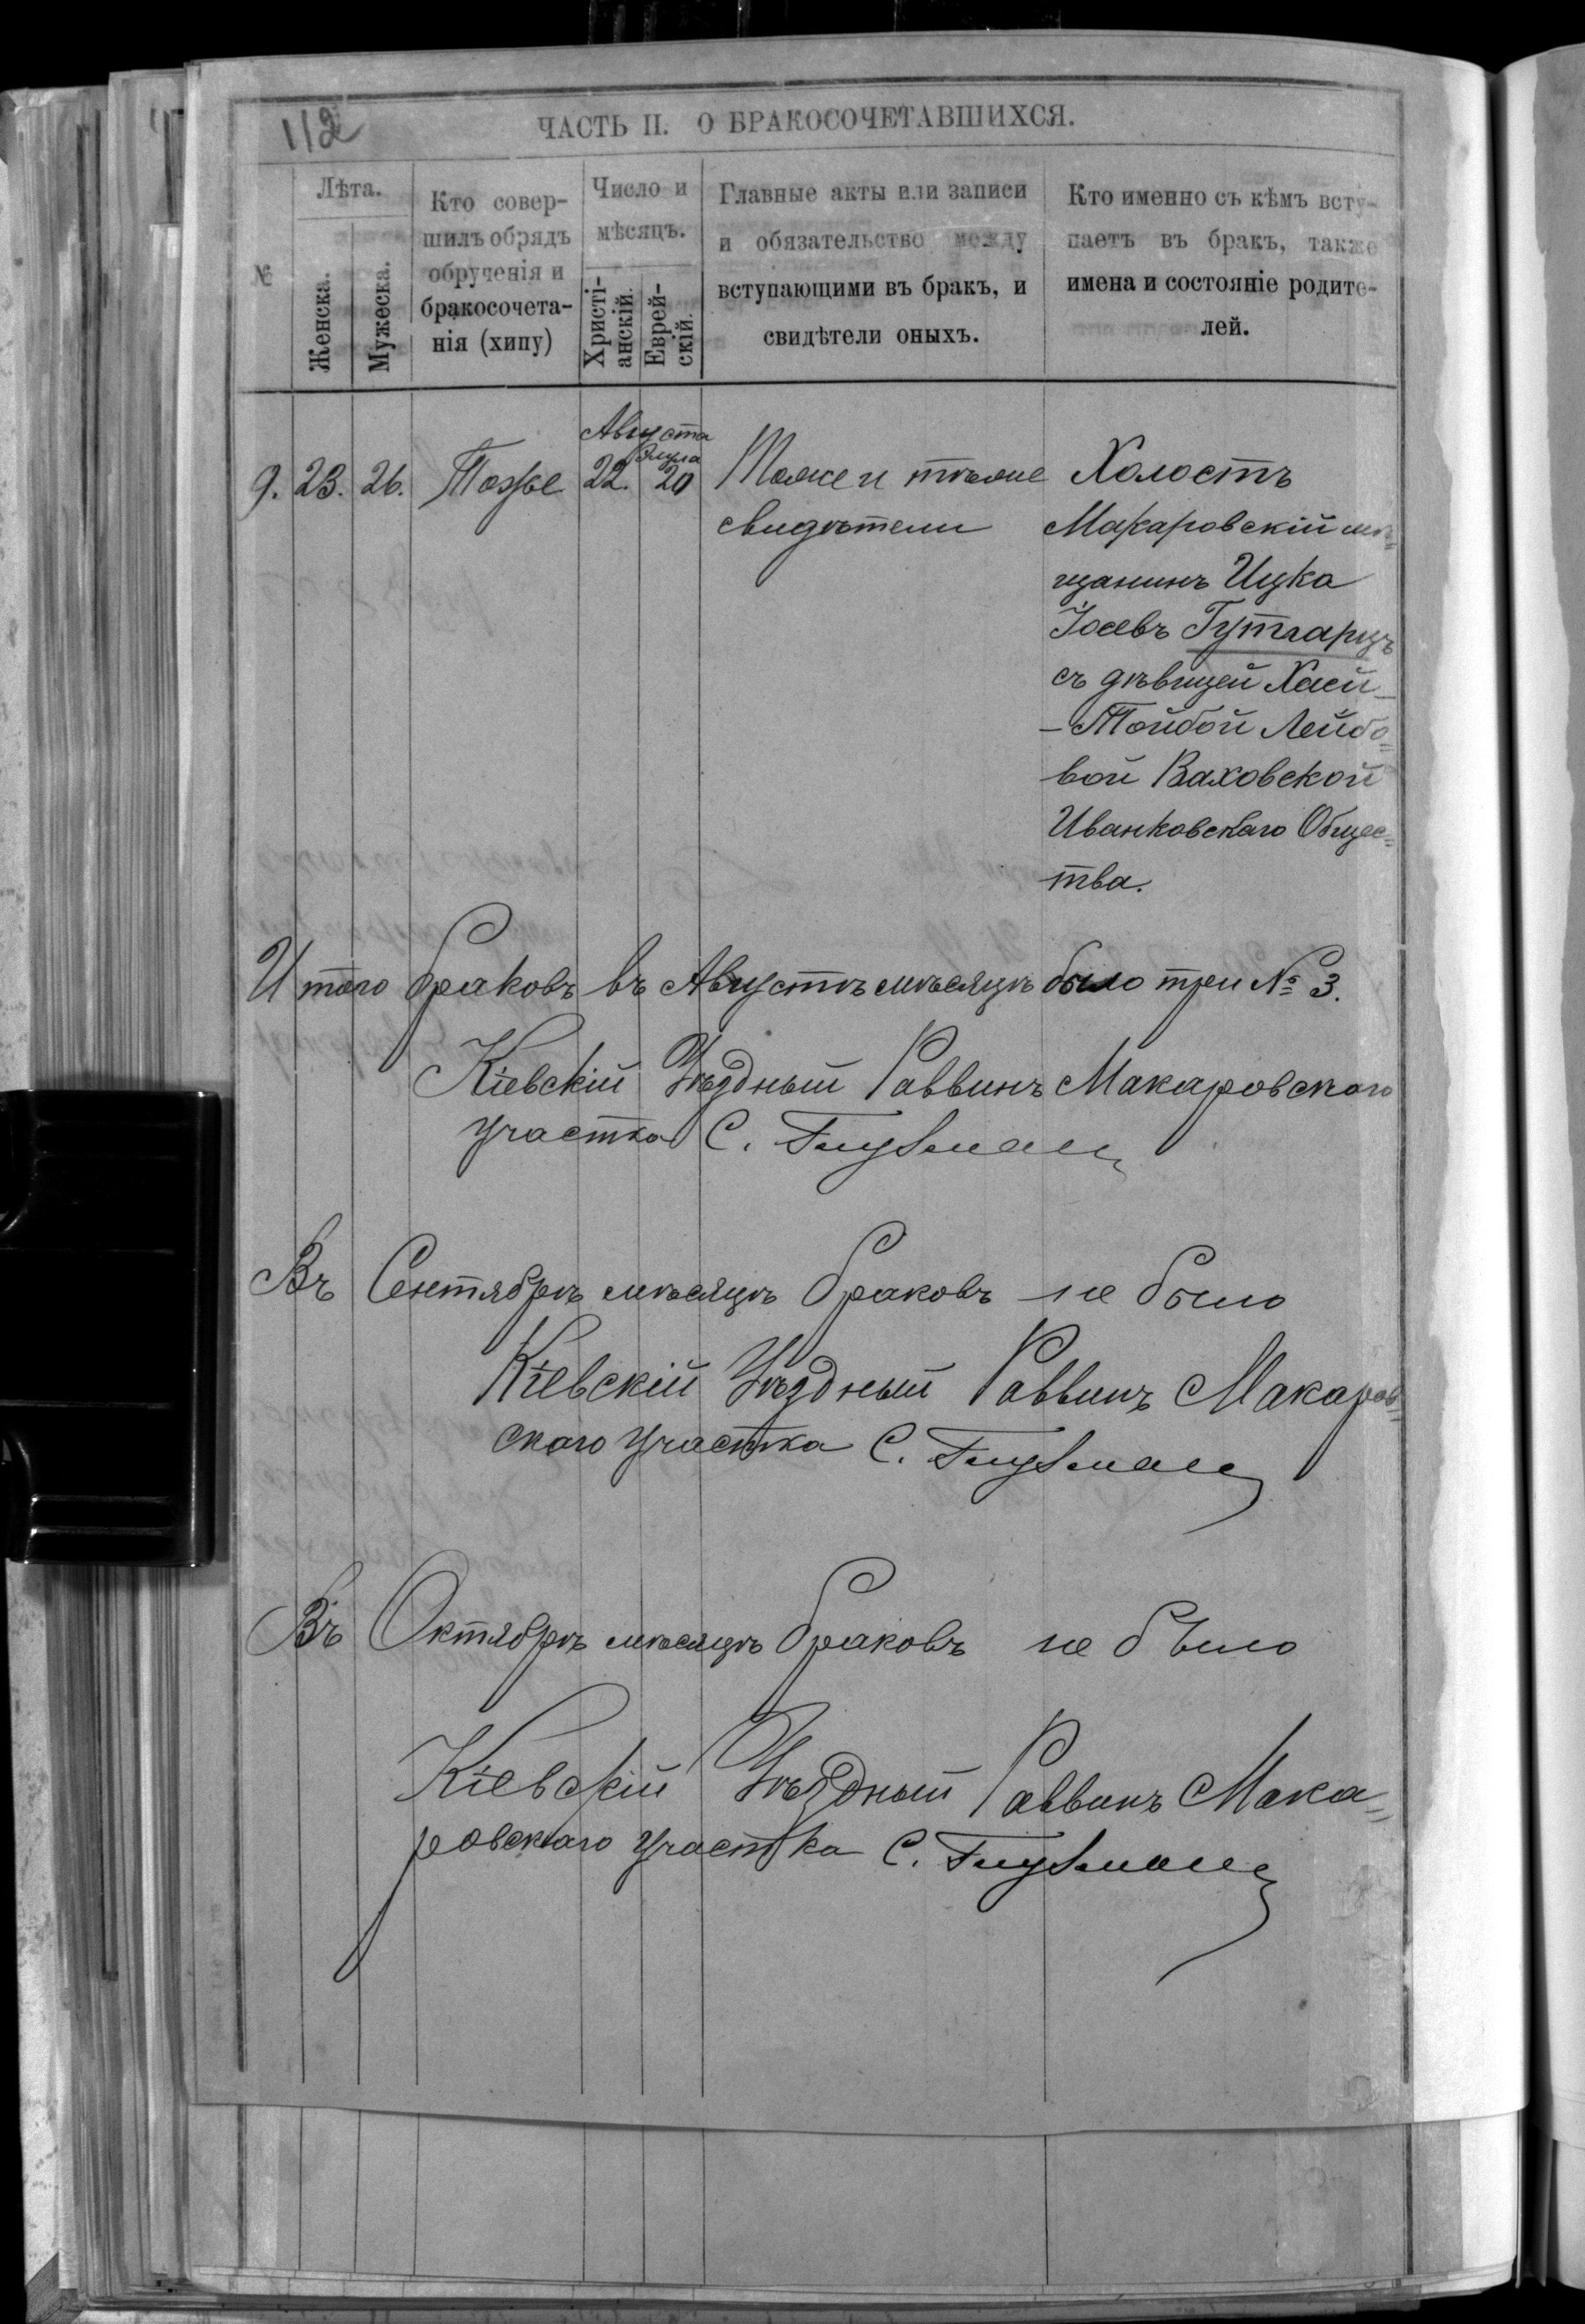 112
ЧАСТЬ II. О БРАКОСОЧЕТАВШИХСЯ.
№
Лѣта.
Женска.
Мужеска.
Кто совер-
шилъ обрядъ
обрученія и
бракосочета-
нія (хипу)
Число и
мѣсяцъ.
Христі-
анскій.
Еврей-
скій.
Главные акты или записи
и обязательство между
вступающими въ бракъ, и
свидѣтели оныхъ.
Кто именно съ кѣмъ всту-
паетъ въ бракъ, также
имена и состояніе родите-
лей.
Августа
Элула
9. 23. 26. Тоже 22. 20 Тоже и тѣже Холостъ
свидѣтели Макаровскій мѣ=
щанинъ Ицка
Іосевъ Гутгарцъ
съ дѣвицей Хаей-
-Тойбой Лейбо=
вой Ваховской
Иванковскаго Общес=
тва.
Итого браковъ въ Августѣ мѣсяцѣ было три № 3.
Кіевскій Уѣздный Раввинъ Макаровскаго
участка С.
Въ Сентябрѣ мѣсяцѣ браковъ не было
Кіевскій Уѣздный Раввинъ Макаров=
скаго участка С.
Въ Октябрѣ мѣсяцѣ браковъ не было
Кіевскій Уѣздный Раввинъ Мака=
ровскаго участка С.